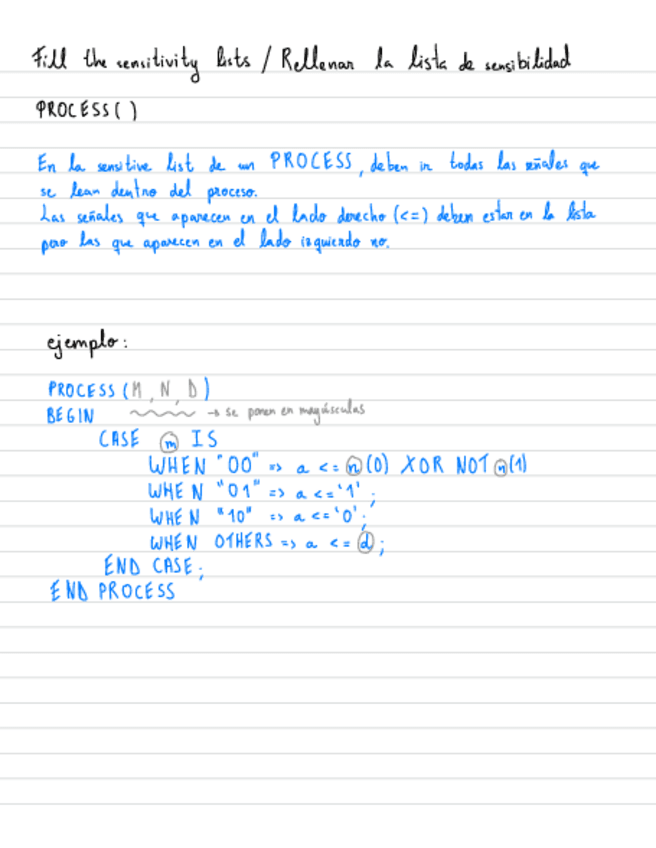 Fill the sensitivity lists / Rellenar la lista de sensibilidad
PROCESS ( )
En la sensitive list de un PROCESS, deben ir todas las señales que
se lean dentro del proceso.
Las señales que aparecen en el lado derecho (<=) deben estar en la lista
pero las que aparecen en el lado izquierdo no.
ejemplo:
PROCESS (M, N, D)
BEGIN → se ponen en mayúsculas
CASE m IS
WHEN "00" => a <= n(0) XOR NOT n(1)
WHEN "01" => a <= '1';
WHEN "10" => a <= '0';
WHEN OTHERS => a <= d;
END CASE;
END PROCESS